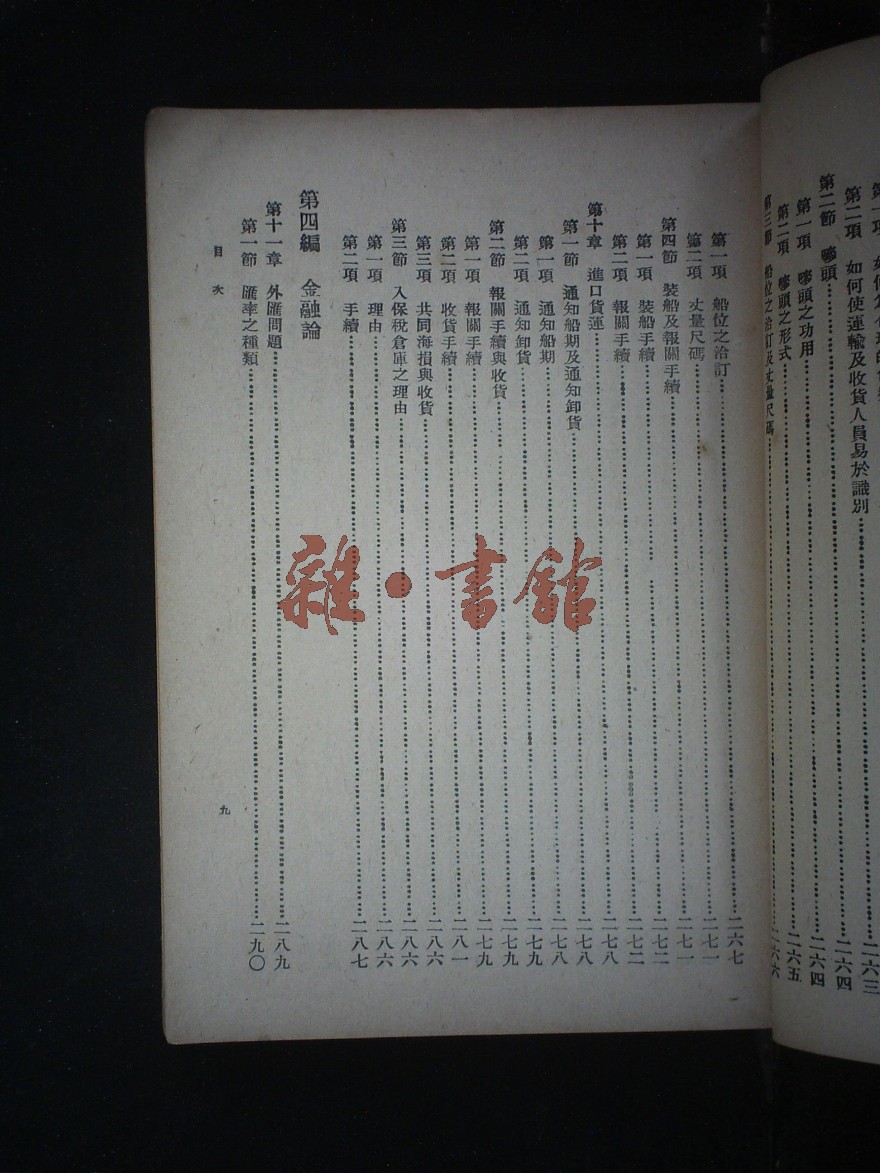 第二項 如何使運輸及收貨人員易於識別……二六三
第二節 嘜頭……二六四
第一項 嘜頭之功用……二六四
第二項 嘜頭之形式……二六五
第三節 船位之洽訂及丈量尺碼……二六六
第一項 船位之洽訂……二六七
第二項 丈量尺碼……二七一
第四節 裝船及報關手續……二七一
第一項 裝船手續……二七二
第二項 報關手續……二七二
第十章 進口貨運……二七八
第一節 通知船期及通知卸貨……二七八
第一項 通知船期……二七八
第二項 通知卸貨……二七九
第二節 報關手續與收貨……二七九
第一項 報關手續……二七九
第二項 收貨手續……二八一
第三項 共同海損與收貨……二八六
第三節 入保稅倉庫之理由……二八六
第一項 理由……二八六
第二項 手續……二八七
第四編 金融論
第十一章 外匯問題……二八九
第一節 匯率之種類……二九〇
目次 九
雜·書館